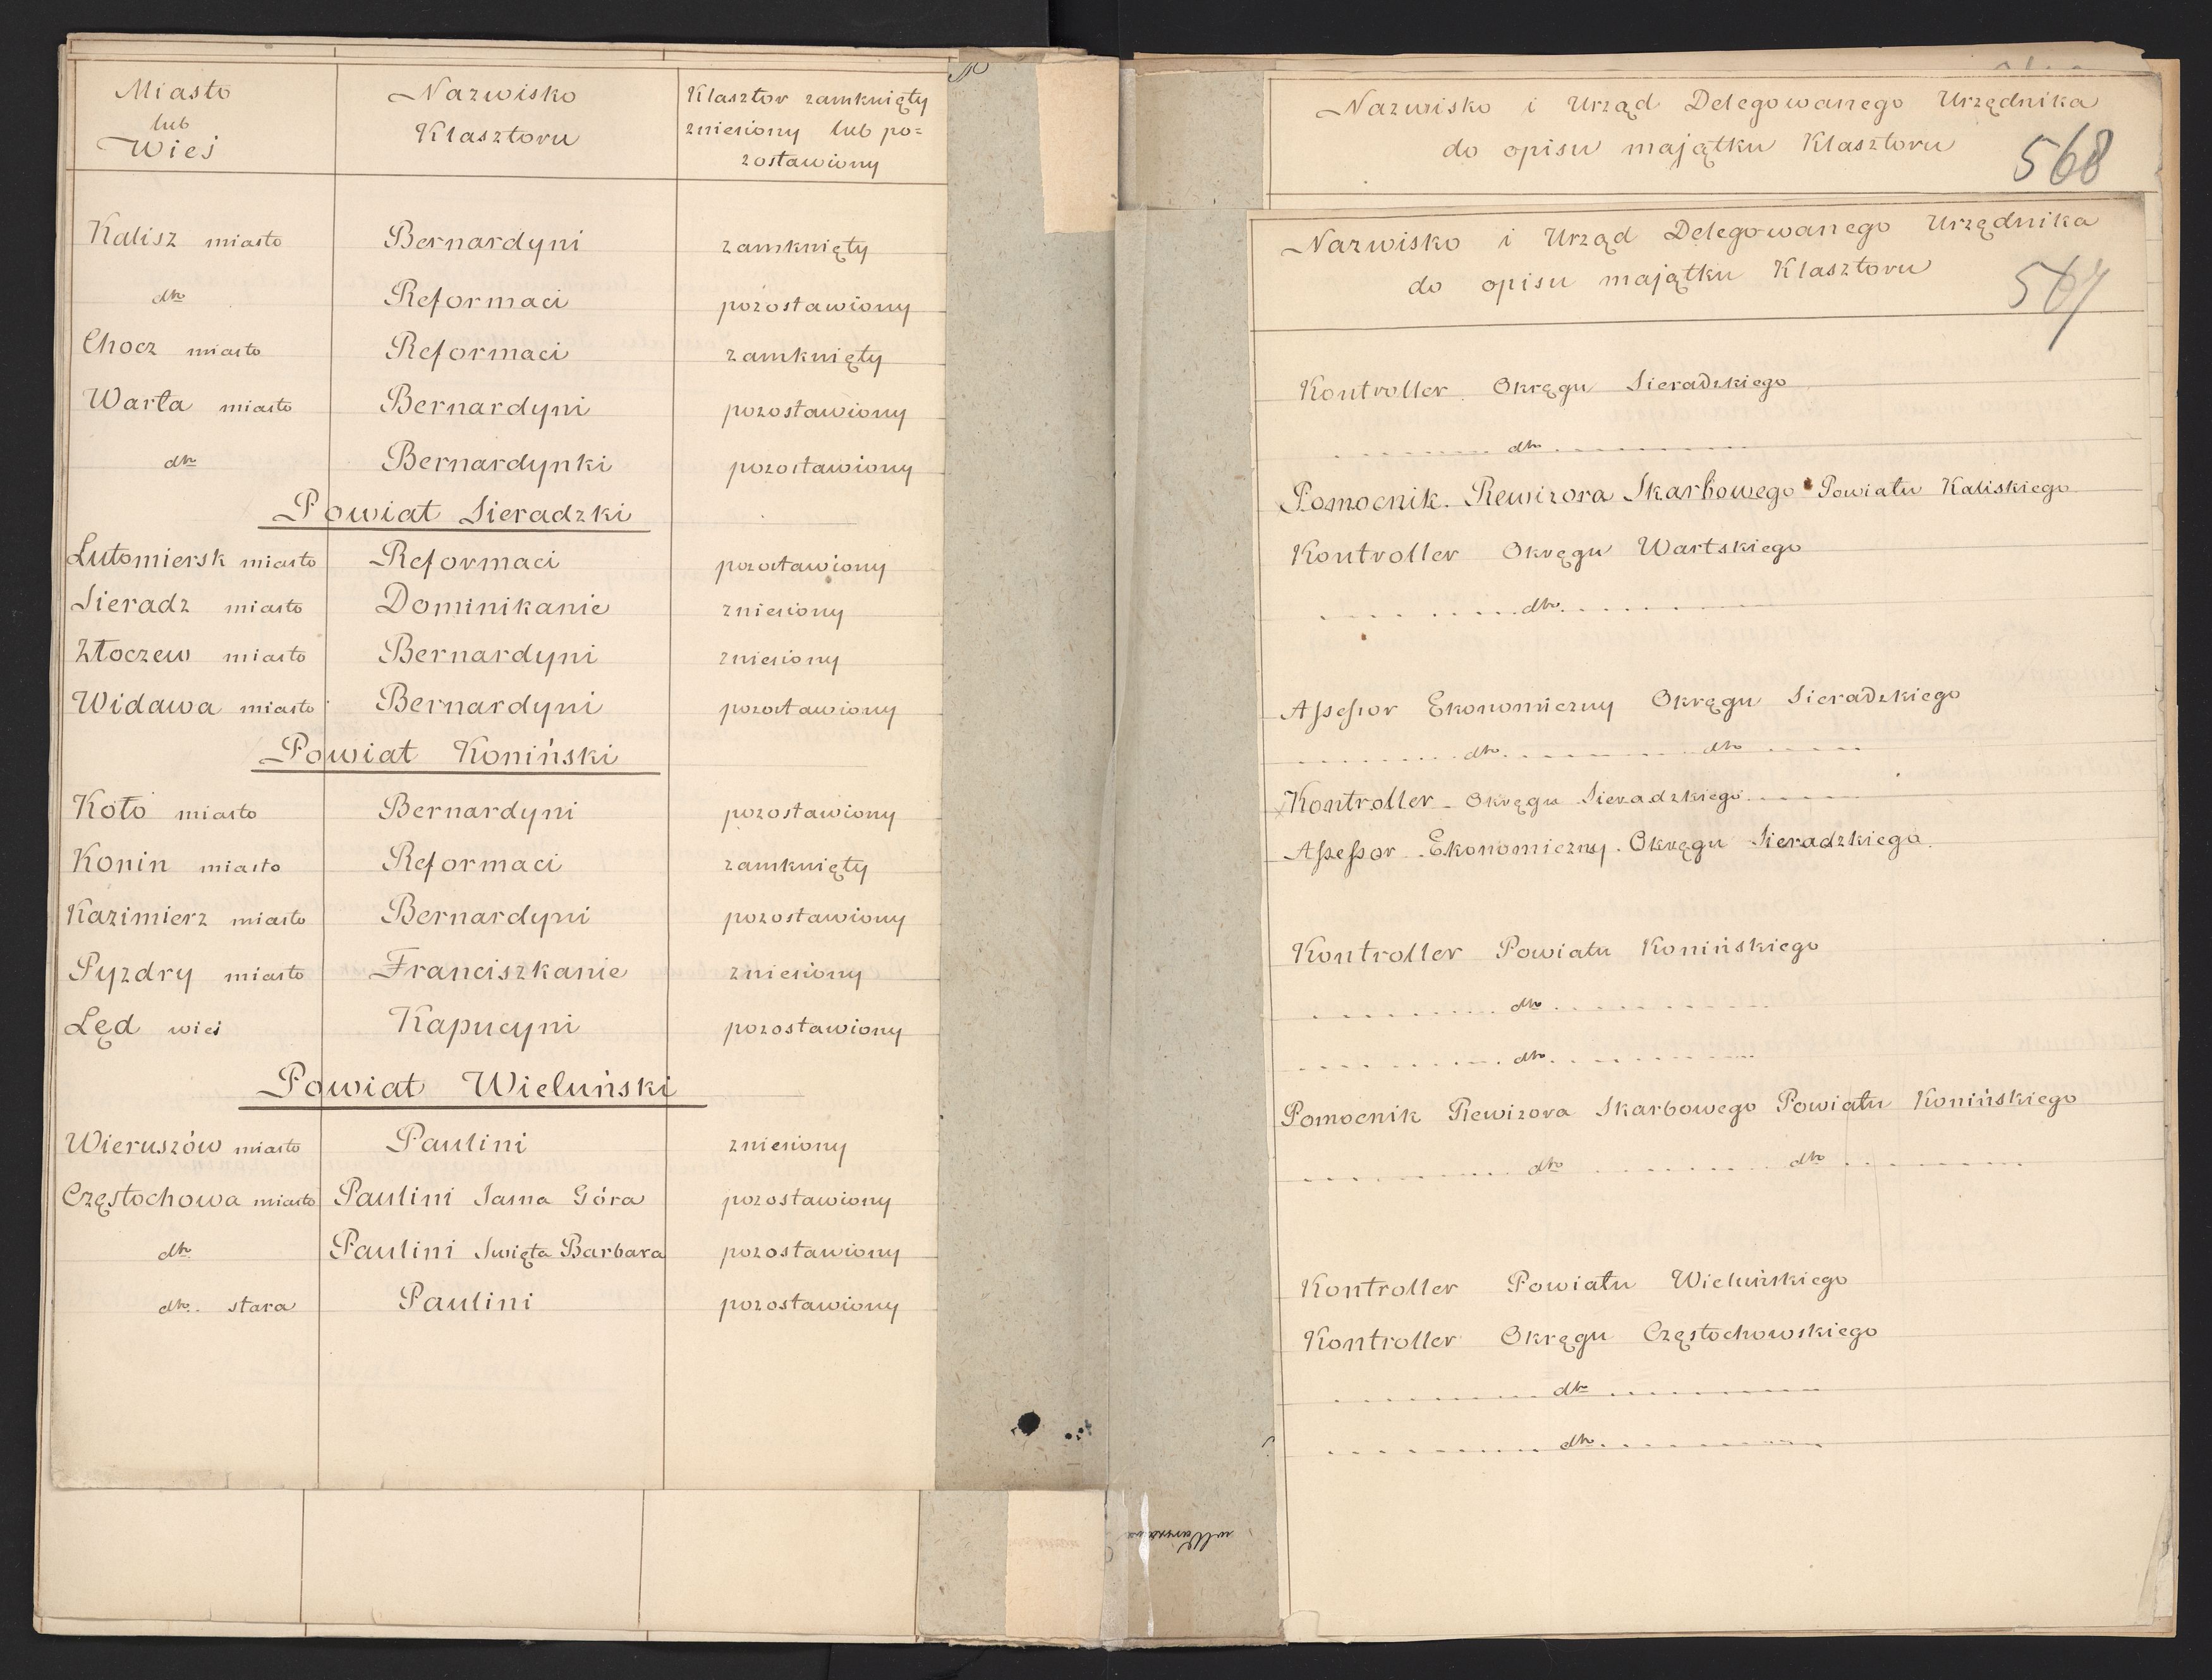 Miasto
lub
Wieś
Nazwisko
Klasztoru
Klasztor zamknięty
zniesiony lub po=
zostawiony
Kalisz miasto Bernardyni zamknięty
dto Reformaci pozostawiony
Chocz miasto Reformaci zamknięty
Warta miasto Bernardyni pozostawiony
dto Bernardynki pozostawiony
Powiat Sieradzki
Lutomiersk miasto Reformaci pozostawiony
Sieradz miasto Dominikanie zniesiony
Złoczew miasto Bernardyni zniesiony
Widawa miasto Bernardyni pozostawiony
Powiat Koniński
Koło miasto Bernardyni pozostawiony
Konin miasto Reformaci zamknięty
Kazimierz miasto Bernardyni pozostawiony
Pyzdry miasto Franciszkanie zniesiony
Ląd wieś Kapucyni pozostawiony
Powiat Wieluński
Wieruszów miasto Paulini zniesiony
Częstochowa miasto Paulini Jasna Góra pozostawiony
dto Paulini Swięta Barbara pozostawiony
dto. stara Paulini pozostawiony
Nazwisko i Urząd Delegowanego Urzędnika
do opisu majątku Klasztoru
568
Nazwisko i Urząd Delegowanego Urzędnika
do opisu majątku Klasztoru
567
Kontroller Okręgu Sieradzkiego
dto
Pomocnik Rewizora Skarbowego Powiatu Kaliskiego
Kontroller Okręgu Wartskiego
dto
Assessor Ekonomiczny Okręgu Sieradzkiego
dto dto
Kontroller Okręgu Sieradzkiego
Assessor Ekonomiczny Okręgu Sieradzkiego
Kontroller Powiatu Konińskiego
dto
dto
Pomocnik Rewizora Skarbowego Powiatu Konińskiego
dto dto
Kontroller Powiatu Wieluńskiego
Kontroller Okręgu Częstochowskiego
dto
dto
w Warszawie